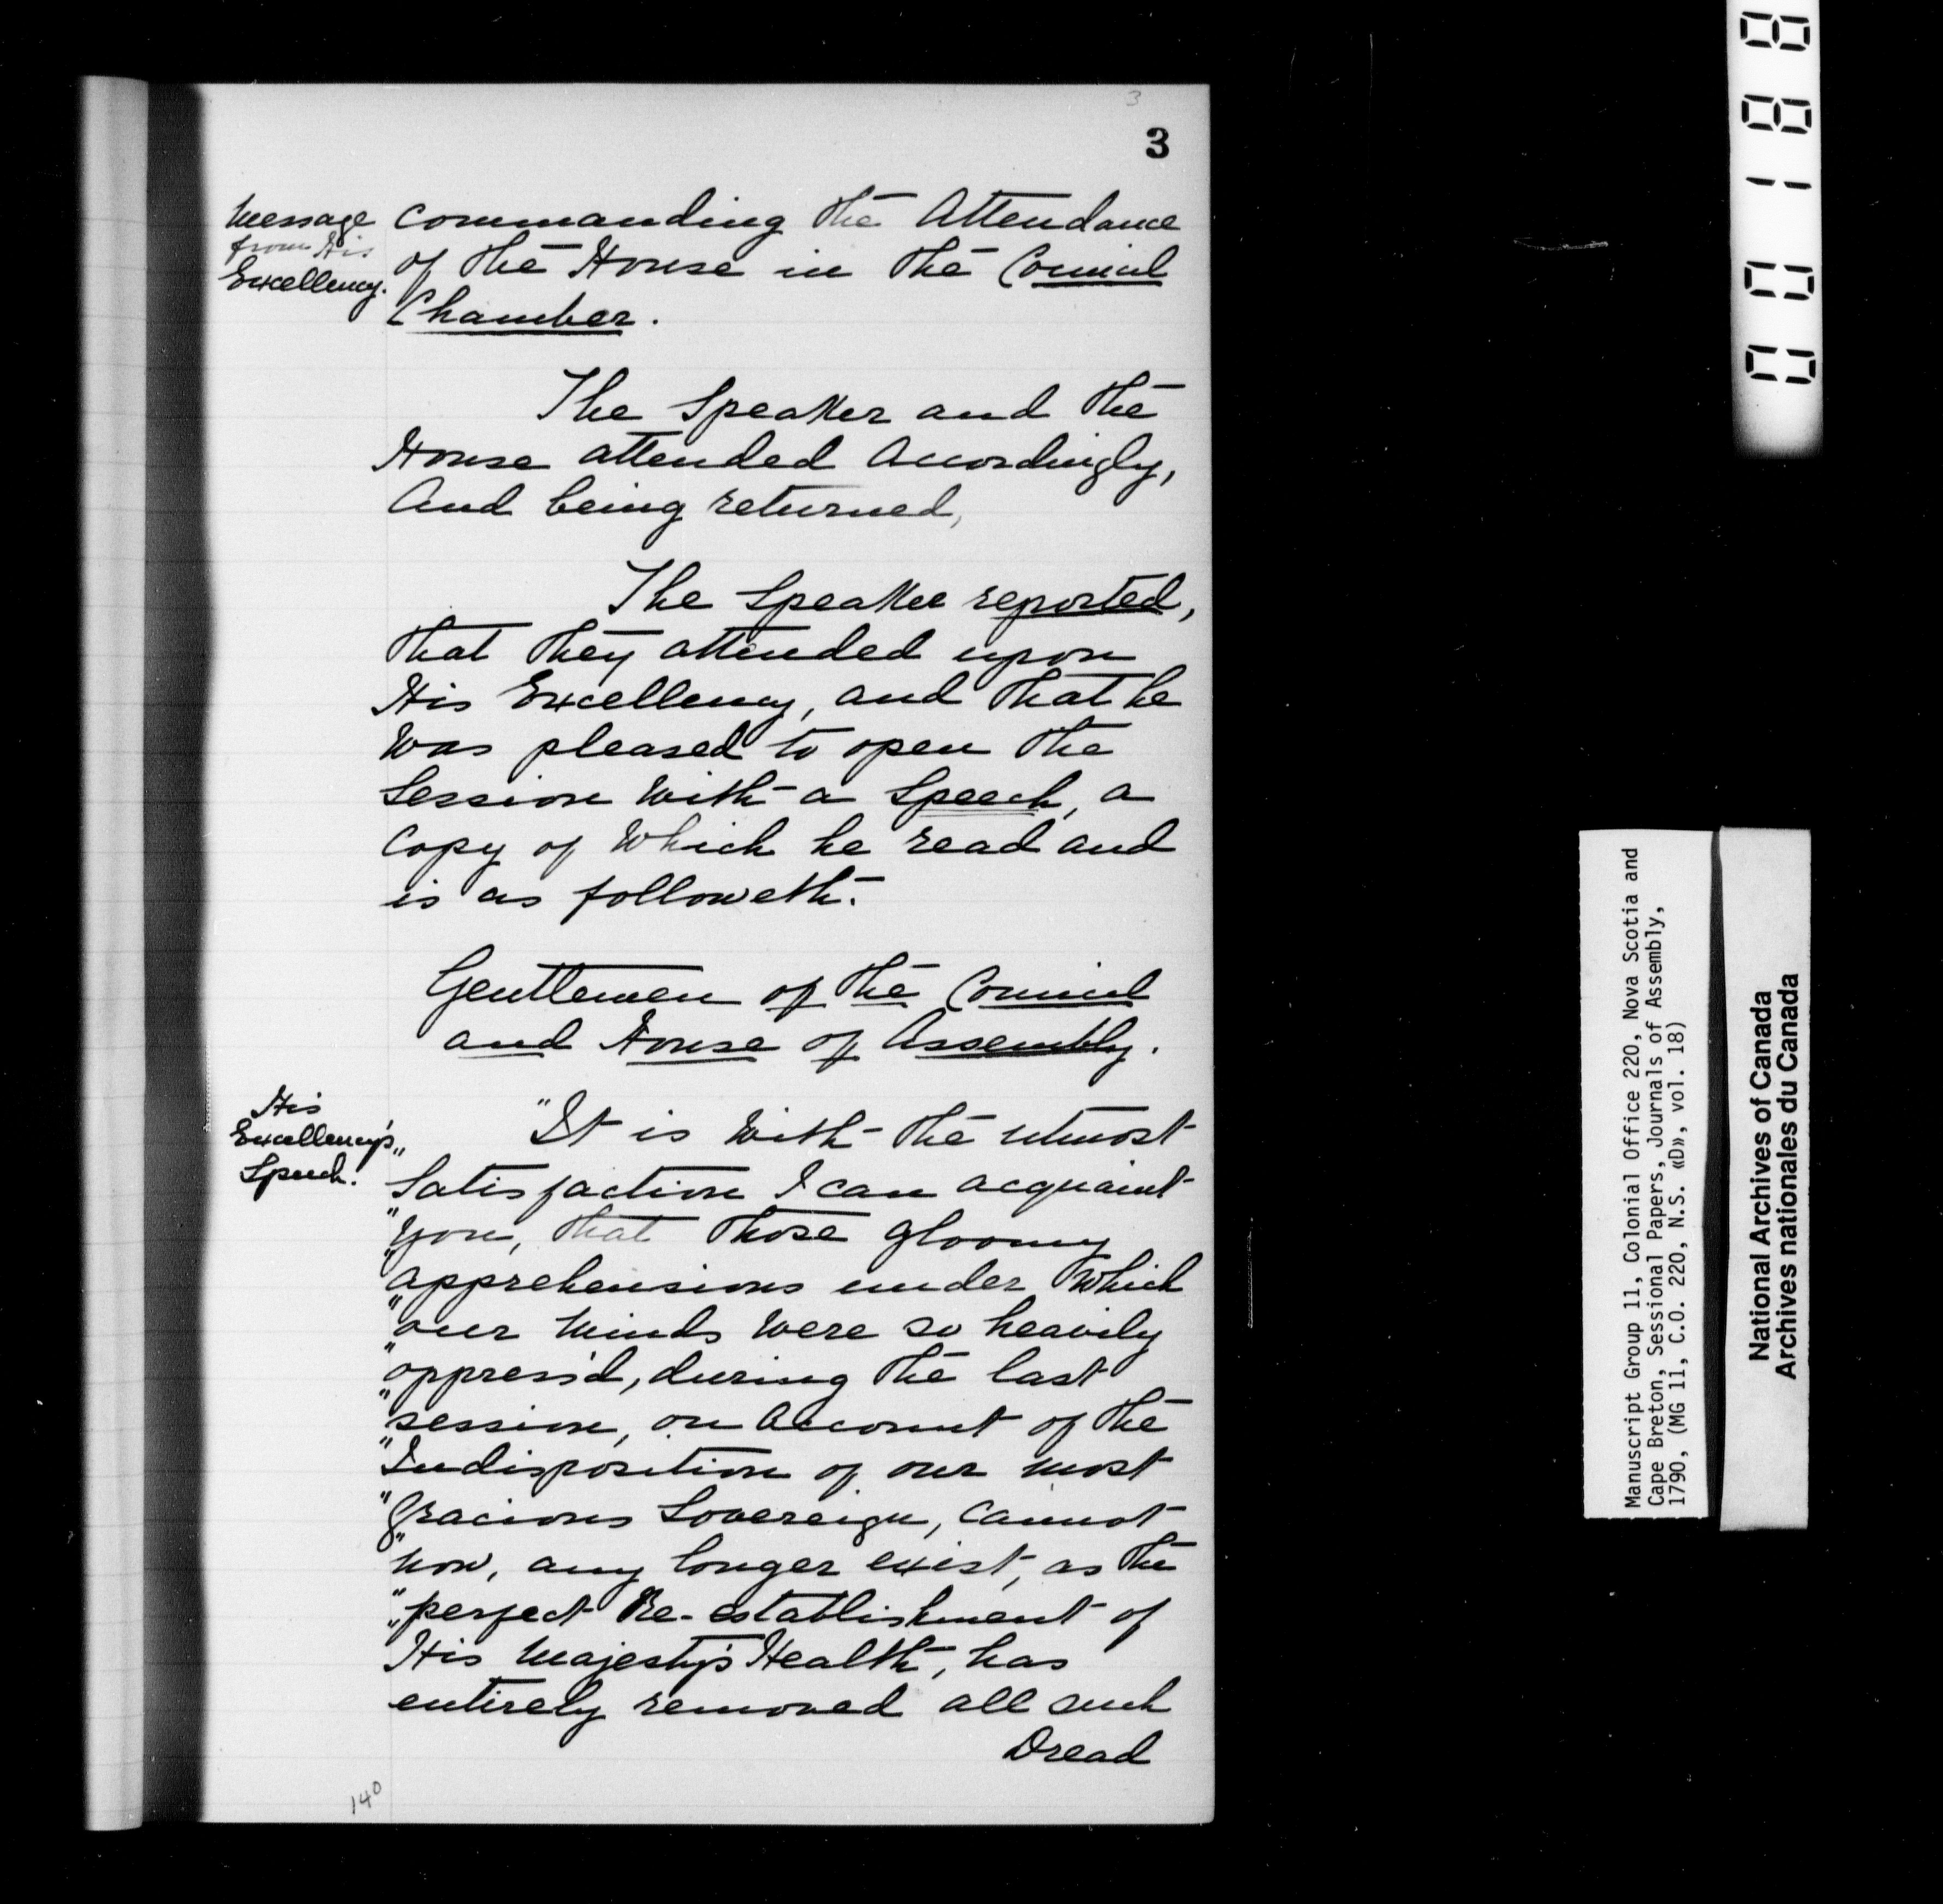 3
3
Message
from His
Excellency.
commanding the Attendance
of the House in the Council
Chamber.
The Speaker and the
House attended Accordingly,
And being returned,
The Speaker reported,
that they attended upon
His Excellency, and that he
Was pleased to open the
Session With a Speech, a
Copy of Which he read and
is as followeth.
Gentlemen of the Council
and House of Assembly.
His
Excellency's
Speech.
"It is With the utmost
"Satisfaction I can acquaint
"you, that those gloomy
"apprehensions under Which
"our Minds Were so heavily
"oppress'd, during the last
"session, on Account of the
"Indisposition of our most
"Gracious Sovereign, Cannot
"now, any longer exist, as the
"perfect Re-establishment of
His Majesty's Health, has
entirely removed all such
Dread
140
00188
Manuscript Group 11, Colonial Office 220, Nova Scotia and
Cape Breton, Sessional Papers, Journals of Assembly,
1790, (MG 11, C.O. 220, N.S. «D», vol. 18)
National Archives of Canada
Archives nationales du Canada